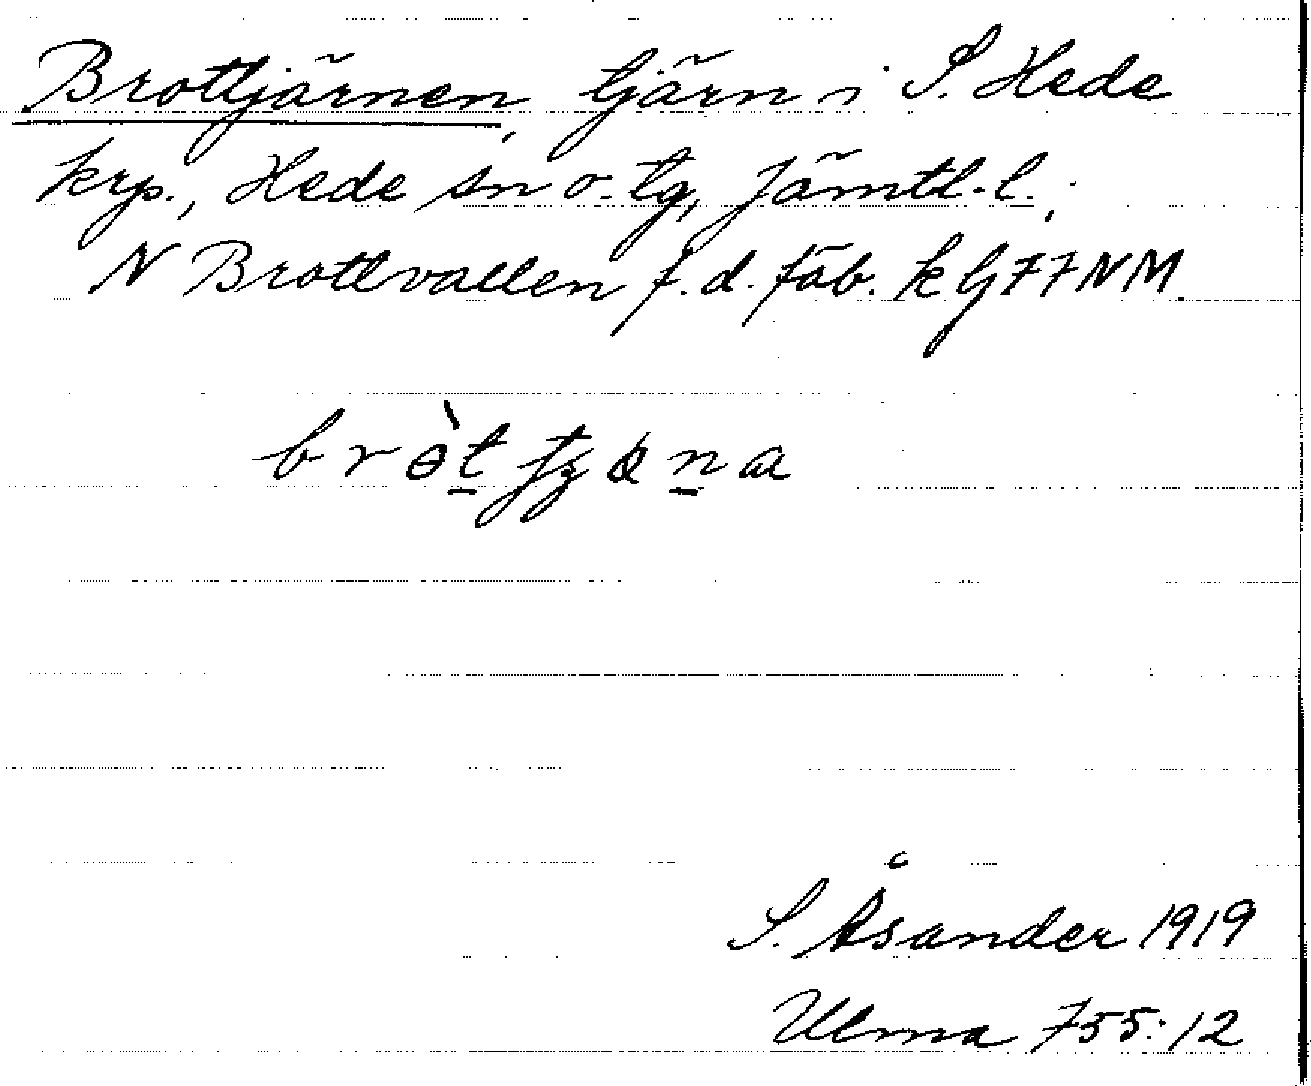 Brottjärnen, tjärn i S. Hede
krp., Hede sn o. tg, Jämtl. l.;
N Brottvallen f.d. fäb. k bj 77NM.
brɵ̀t̠ tʒäṉa
S. Åsander 1919
Ulma 755:12